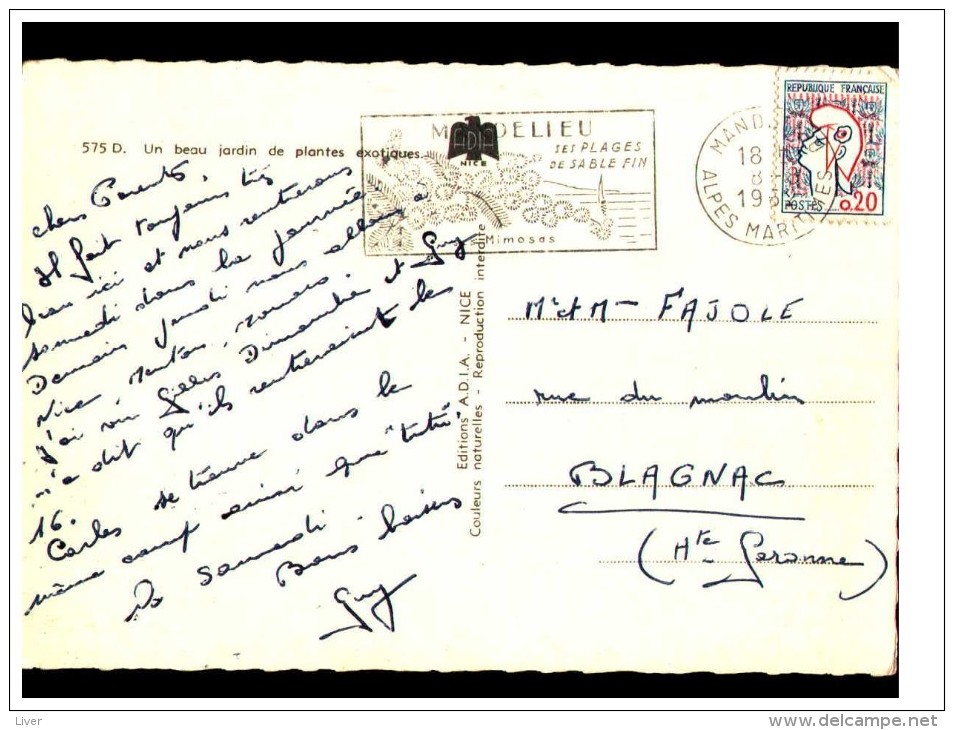 575 D. Un beau jardin de plantes exotiques.
chers Parents,
Il fait toujours très
beau ici et nous rentrerons
samedi dans la journée
Demain jeudi nous allons à
Nice, Menton, Monaco.
J'ai vu Gilles Dimanche et Guy
m'a dit qu'ils rentreraient le
16.
Carles se trouve dans le
même camp ainsi que "tutu"
A Samedi.
Bons baisers
Guy
Editions A.D.I.A. - NICE
Couleurs naturelles - Reproduction interdite
ADIA
NICE
MANDELIEU
SES PLAGES
DE SABLE FIN
Mimosas
MAND
18
8
19
ALPES MARITIMES
REPUBLIQUE FRANÇAISE
POSTES 0,20
Mr et Mme FAJOLE
rue du moulin
BLAGNAC
(Hte Garonne)
Liver
www.delcampe.net